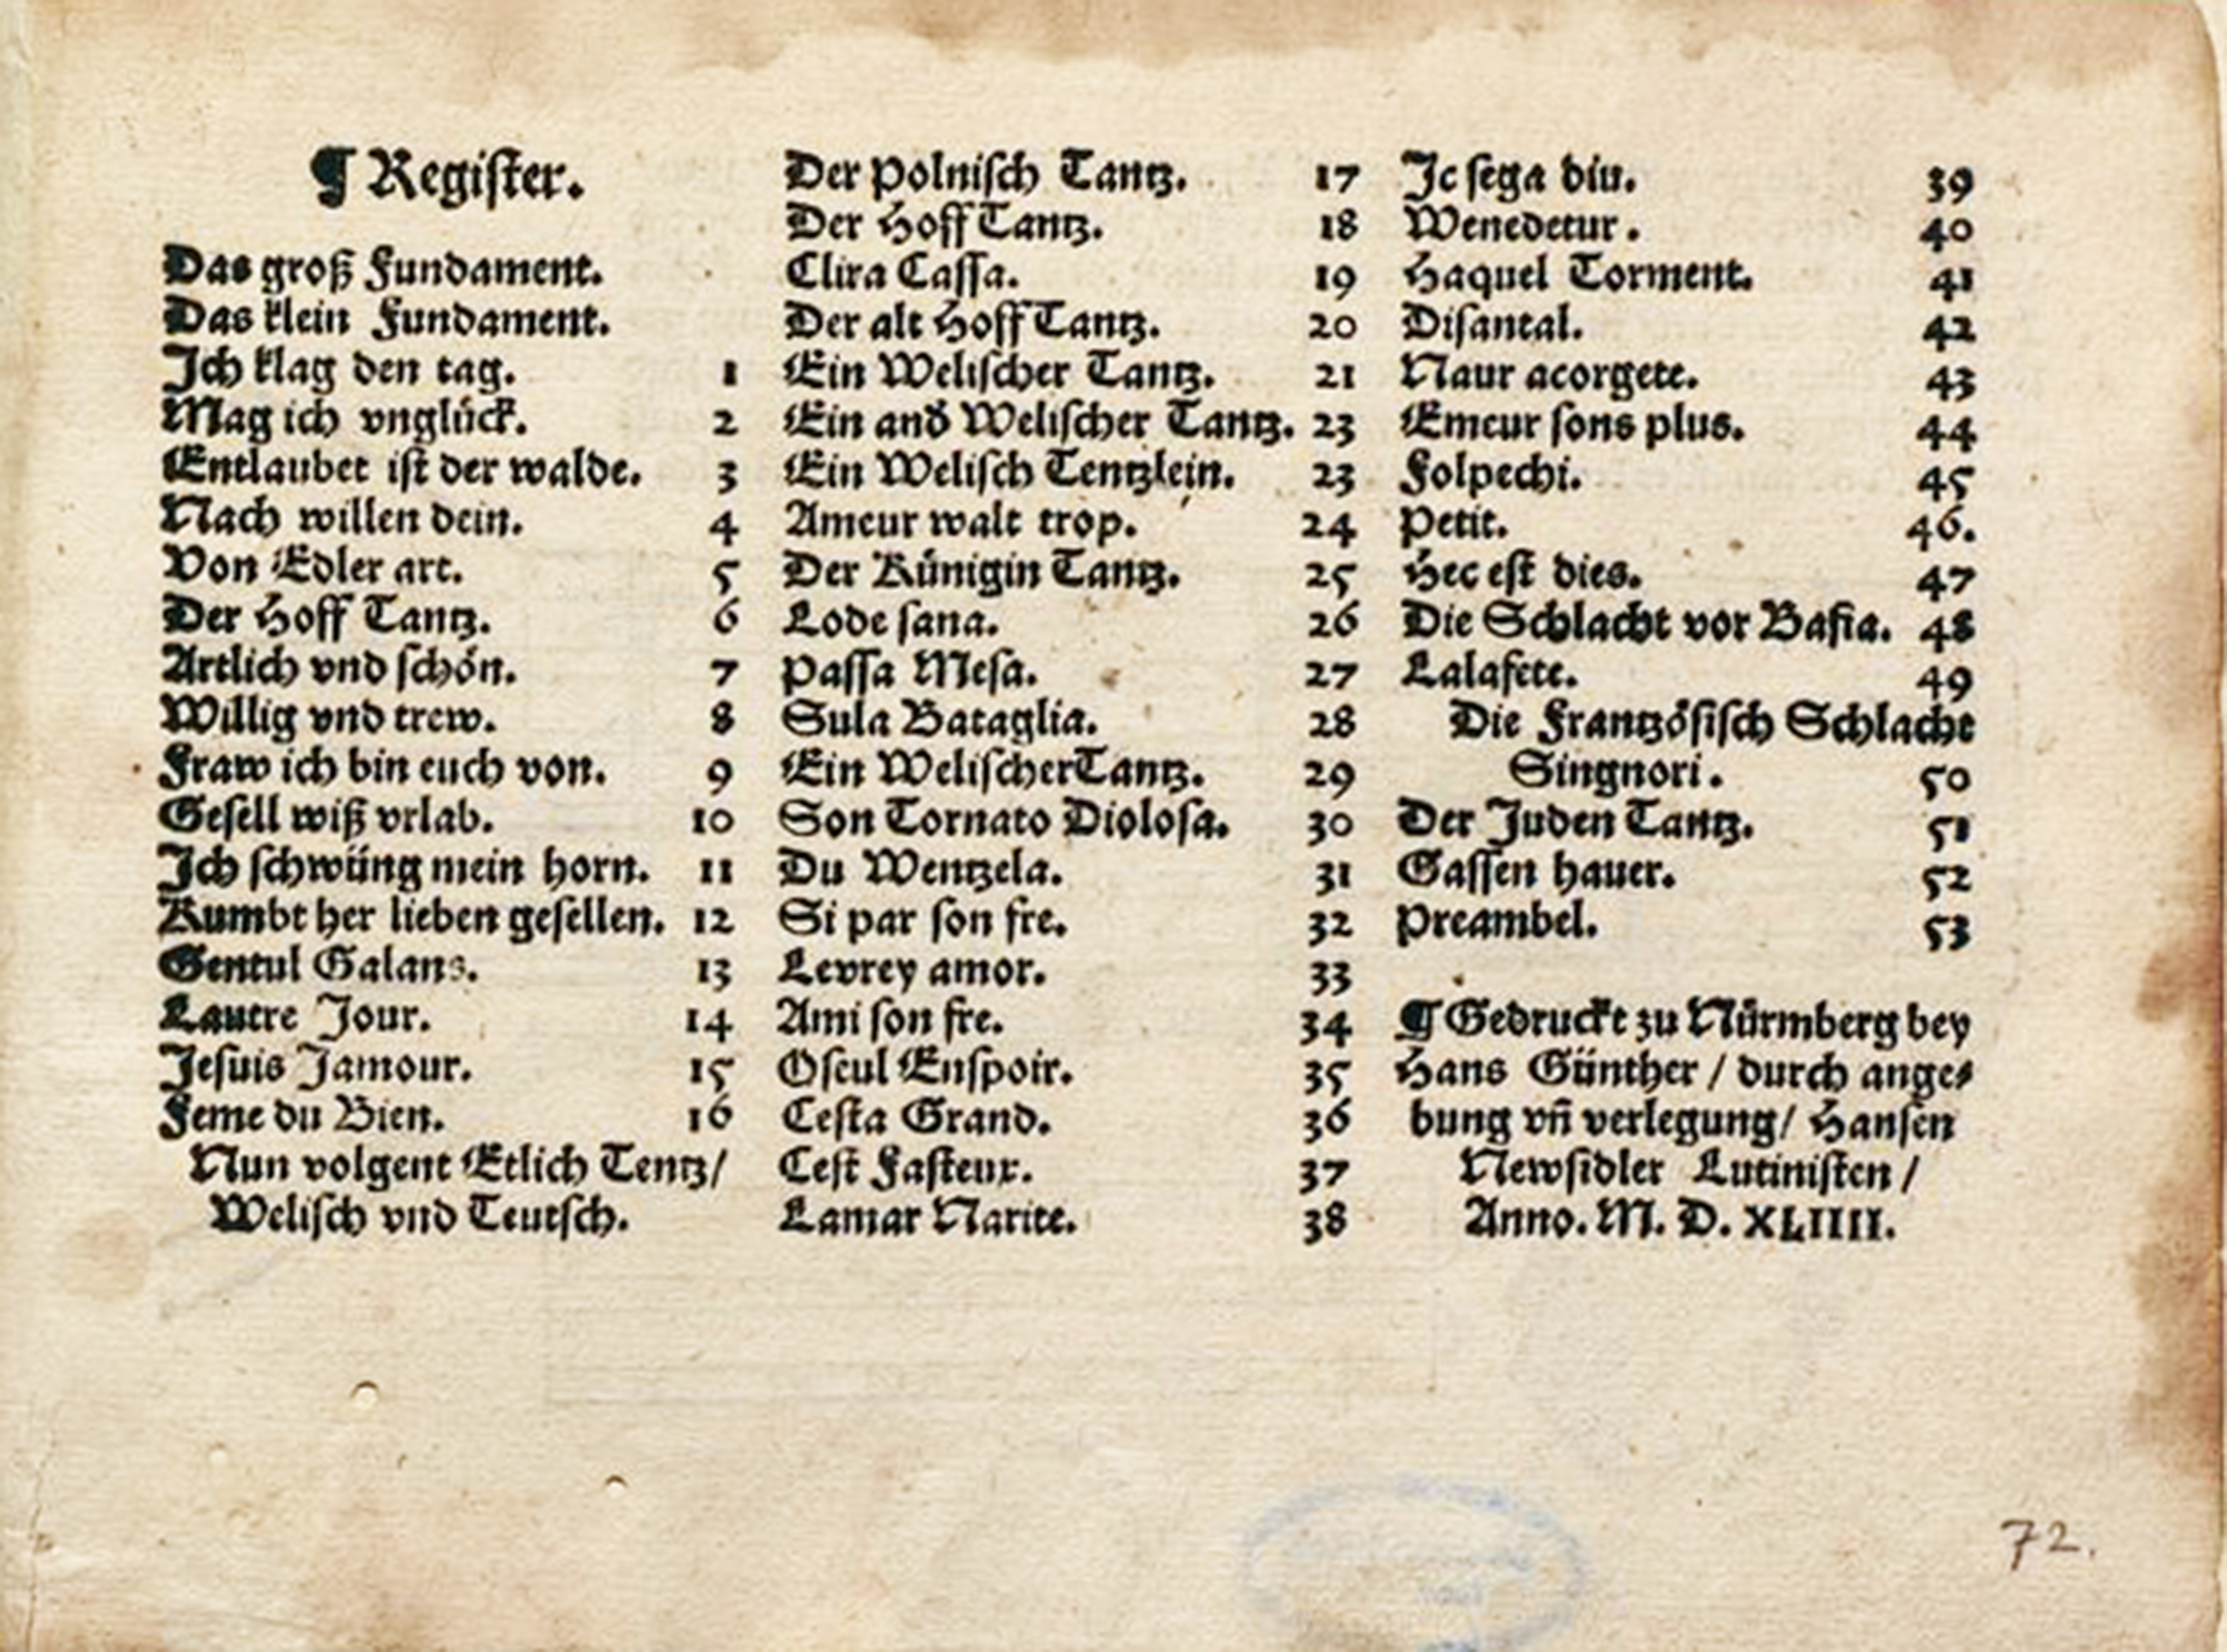 ¶ Register.
Das groß Fundament.
Das klein Fundament.
Ich klag den tag. 1
Mag ich vnglück. 2
Entlaubet ist der walde. 3
Nach willen dein. 4
Von Edler art. 5
Der Hoff Tantz. 6
Artlich vnd schön. 7
Willig vnd trew. 8
Fraw ich bin euch von. 9
Gesell wiß vrlab. 10
Ich schwüng mein horn. 11
Kumbt her lieben gesellen. 12
Gentul Galans. 13
Lautre Jour. 14
Jesuis Jamour. 15
Feme du Bien. 16
Nun volgent Etlich Tentz/
Welisch vnd Teutsch.
Der Polnisch Tantz. 17
Der Hoff Tantz. 18
Clira Cassa. 19
Der alt Hoff Tantz. 20
Ein Welischer Tantz. 21
Ein and̄ Welischer Tantz. 23
Ein Welisch Tentzlein. 23
Ameur walt trop. 24
Der Künigin Tantz. 25
Lode sana. 26
Passa Mesa. 27
Sula Bataglia. 28
Ein Welischer Tantz. 29
Son Tornato Diolosa. 30
Du Wentzela. 31
Si par son fre. 32
Levrey amor. 33
Ami son fre. 34
Oscul Enspoir. 35
Cesta Grand. 36
Cest Fasteur. 37
Lamar Narite. 38
Jc sega diu. 39
Wenedetur. 40
Haquel Torment. 41
Disantal. 42
Naur acorgete. 43
Emeur sons plus. 44
Folpechi. 45
Petit. 46.
Hec est dies. 47
Die Schlacht vor Bafia. 48
Lalafete. 49
Die Frantzösisch Schlacht
Singnori. 50
Der Juden Tantz. 51
Gassen hauer. 52
Preambel. 53
¶ Gedruckt zu Nürmberg bey
Hans Günther / durch ange⸗
bung vñ verlegung/ Hansen
Newsidler Lutinisten /
Anno. M. D. XLIIII.
72.